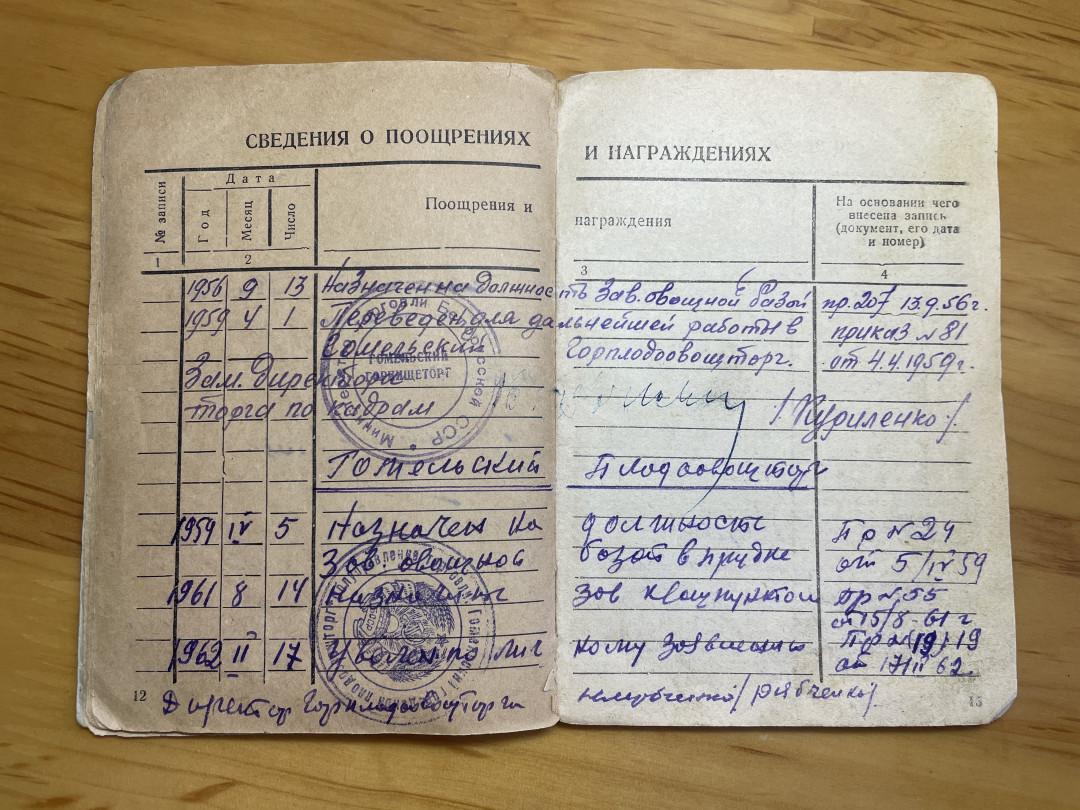 СВЕДЕНИЯ О ПООЩРЕНИЯХ И НАГРАЖДЕНИЯХ
№ записи
Дата
Год Месяц Число
Поощрения и награждения
На основании чего внесена запись (документ, его дата и номер)
1 2 3 4
1956 9 13 Назначен на должность Зав. овощной базой пр. 207 13.9.56 г.
1959 4 1 Переведен для дальнейшей работы в приказ №81
Гомельский Горплодоовощторг. от 4.4.1959 г.
Зам. Директора
торга по кадрам /Куриленко/
ГОМЕЛЬСКИЙ
ГОРПИЩЕТОРГ
Гомельский Плодоовощторг
1959 IV 5 Назначен на должность Пр №24
Зав. овощной базой в от 5/IV 59
1961 8 14 Назначен зав квашпунктом Пр №55
от 15/8-61 г
1962 II 17 Уволен по личному Пр №(19) 19
от 17/II 62 г.
12 Директор Горплодоовощторга /Рябченко/
13